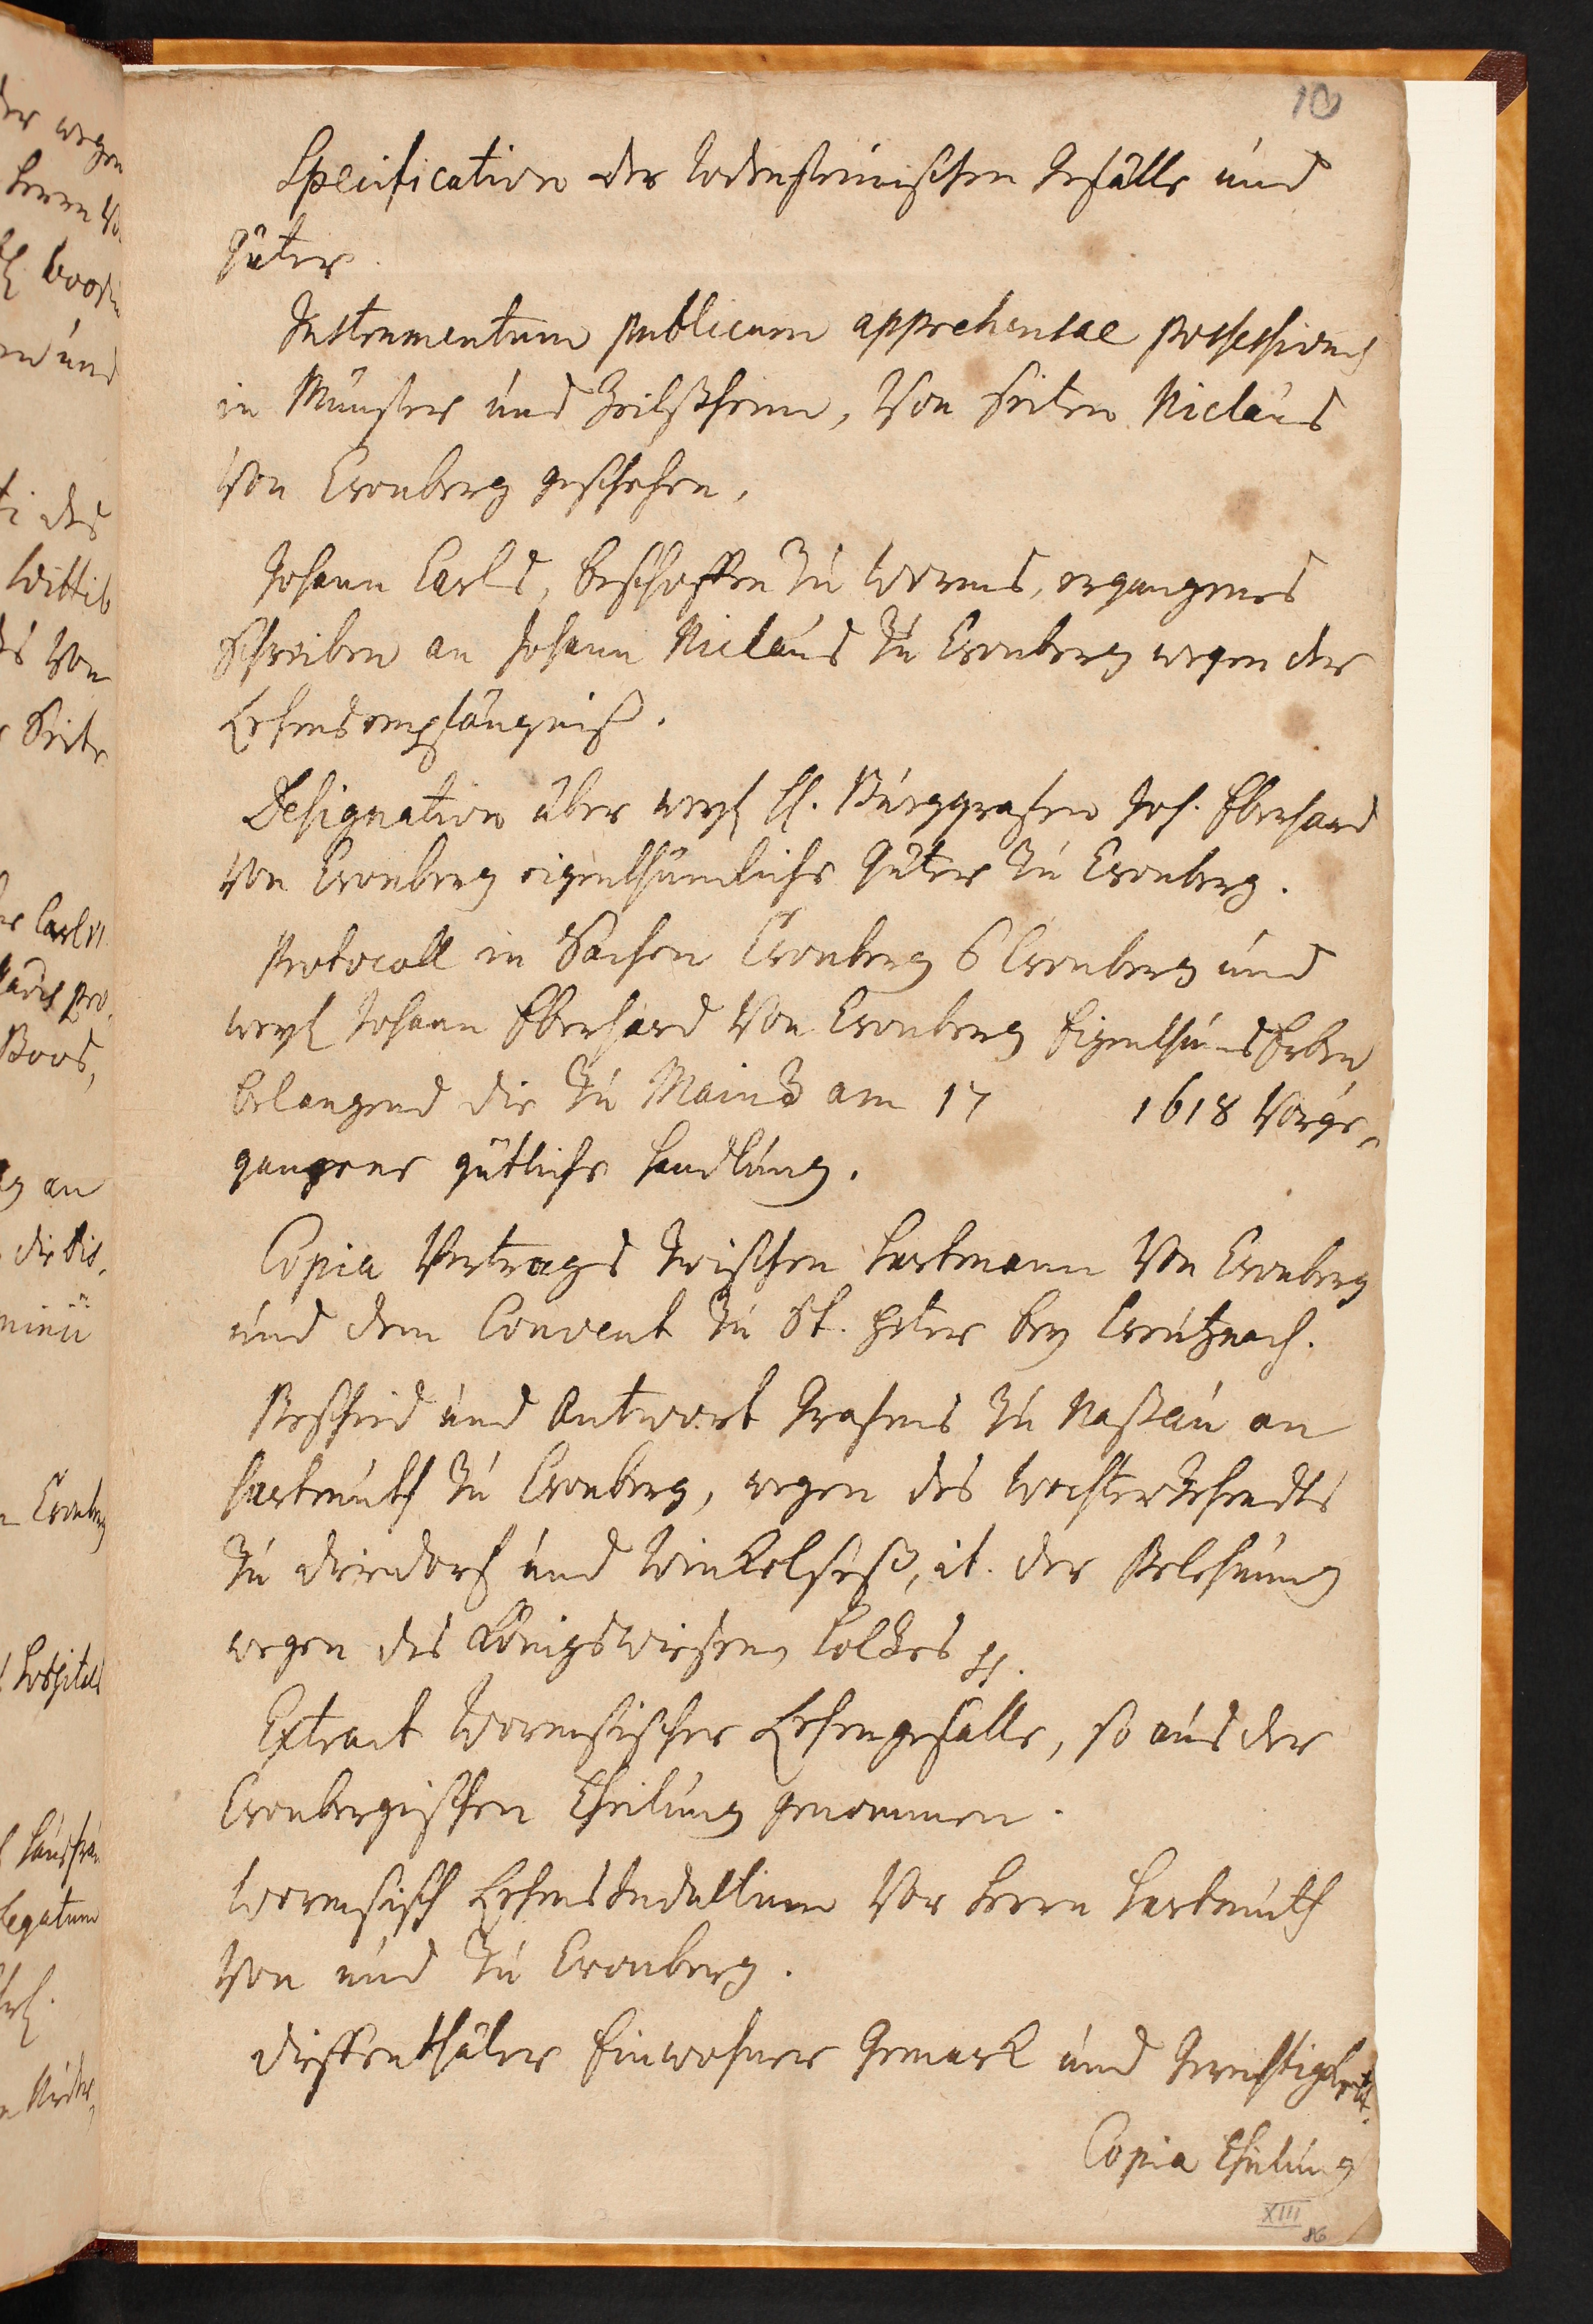 10
Specification der Rodensteinischen Gefälle und
Güter.
Instrumentum publicum apprehensae possessionis
in Münster und Zeilßheim, Von seiten Niclaus
Von Cronberg geschehen.
Johann Carls, Beschoffen zu Worms, ergangenes
Schreiben an Johann Niclaus zu Cronberg wegen der
Lehensempfängniß.
Designation über weyl H. Burggrafen Joh. Eberhard
Von Cronberg eigenthümliche Güter zu Cronberg.
Protocoll in Sachen Cronberg Cronberg und
weyl Johann Eberhard Von Cronberg Eigenthums Erben
belangend die zu Maintz am 17 1618 Vorge-
gangene gütliche Handlung.
Copia Vertrags zwischen Hartmann Von Cronberg
und dem Convent zu St. Peter bey Creutznach.
Bescheid und Antwort Grafens zu Naßau an
Hartmuth zu Cronberg, wegen des zehendts
zu Diedorf und it. der Belehnung
wegen des Königswießen, Holtzes
Extract Wormsischer Lehengefälle, so aus der
Cronbergischen Theilung genommen.
Wormsisch Lehens Indultum Vor Herrn Hartmuth
Von und zu Cronberg.
Dieffenthäler Einwohner Gemark und Gerechtigkeit.
Copia Theilung
XIII
86
der wegen
Herrn
und
des
Wittib
Von
Seite
Carl
Boos,
an
die
Cronberg
Hospitals
legatum